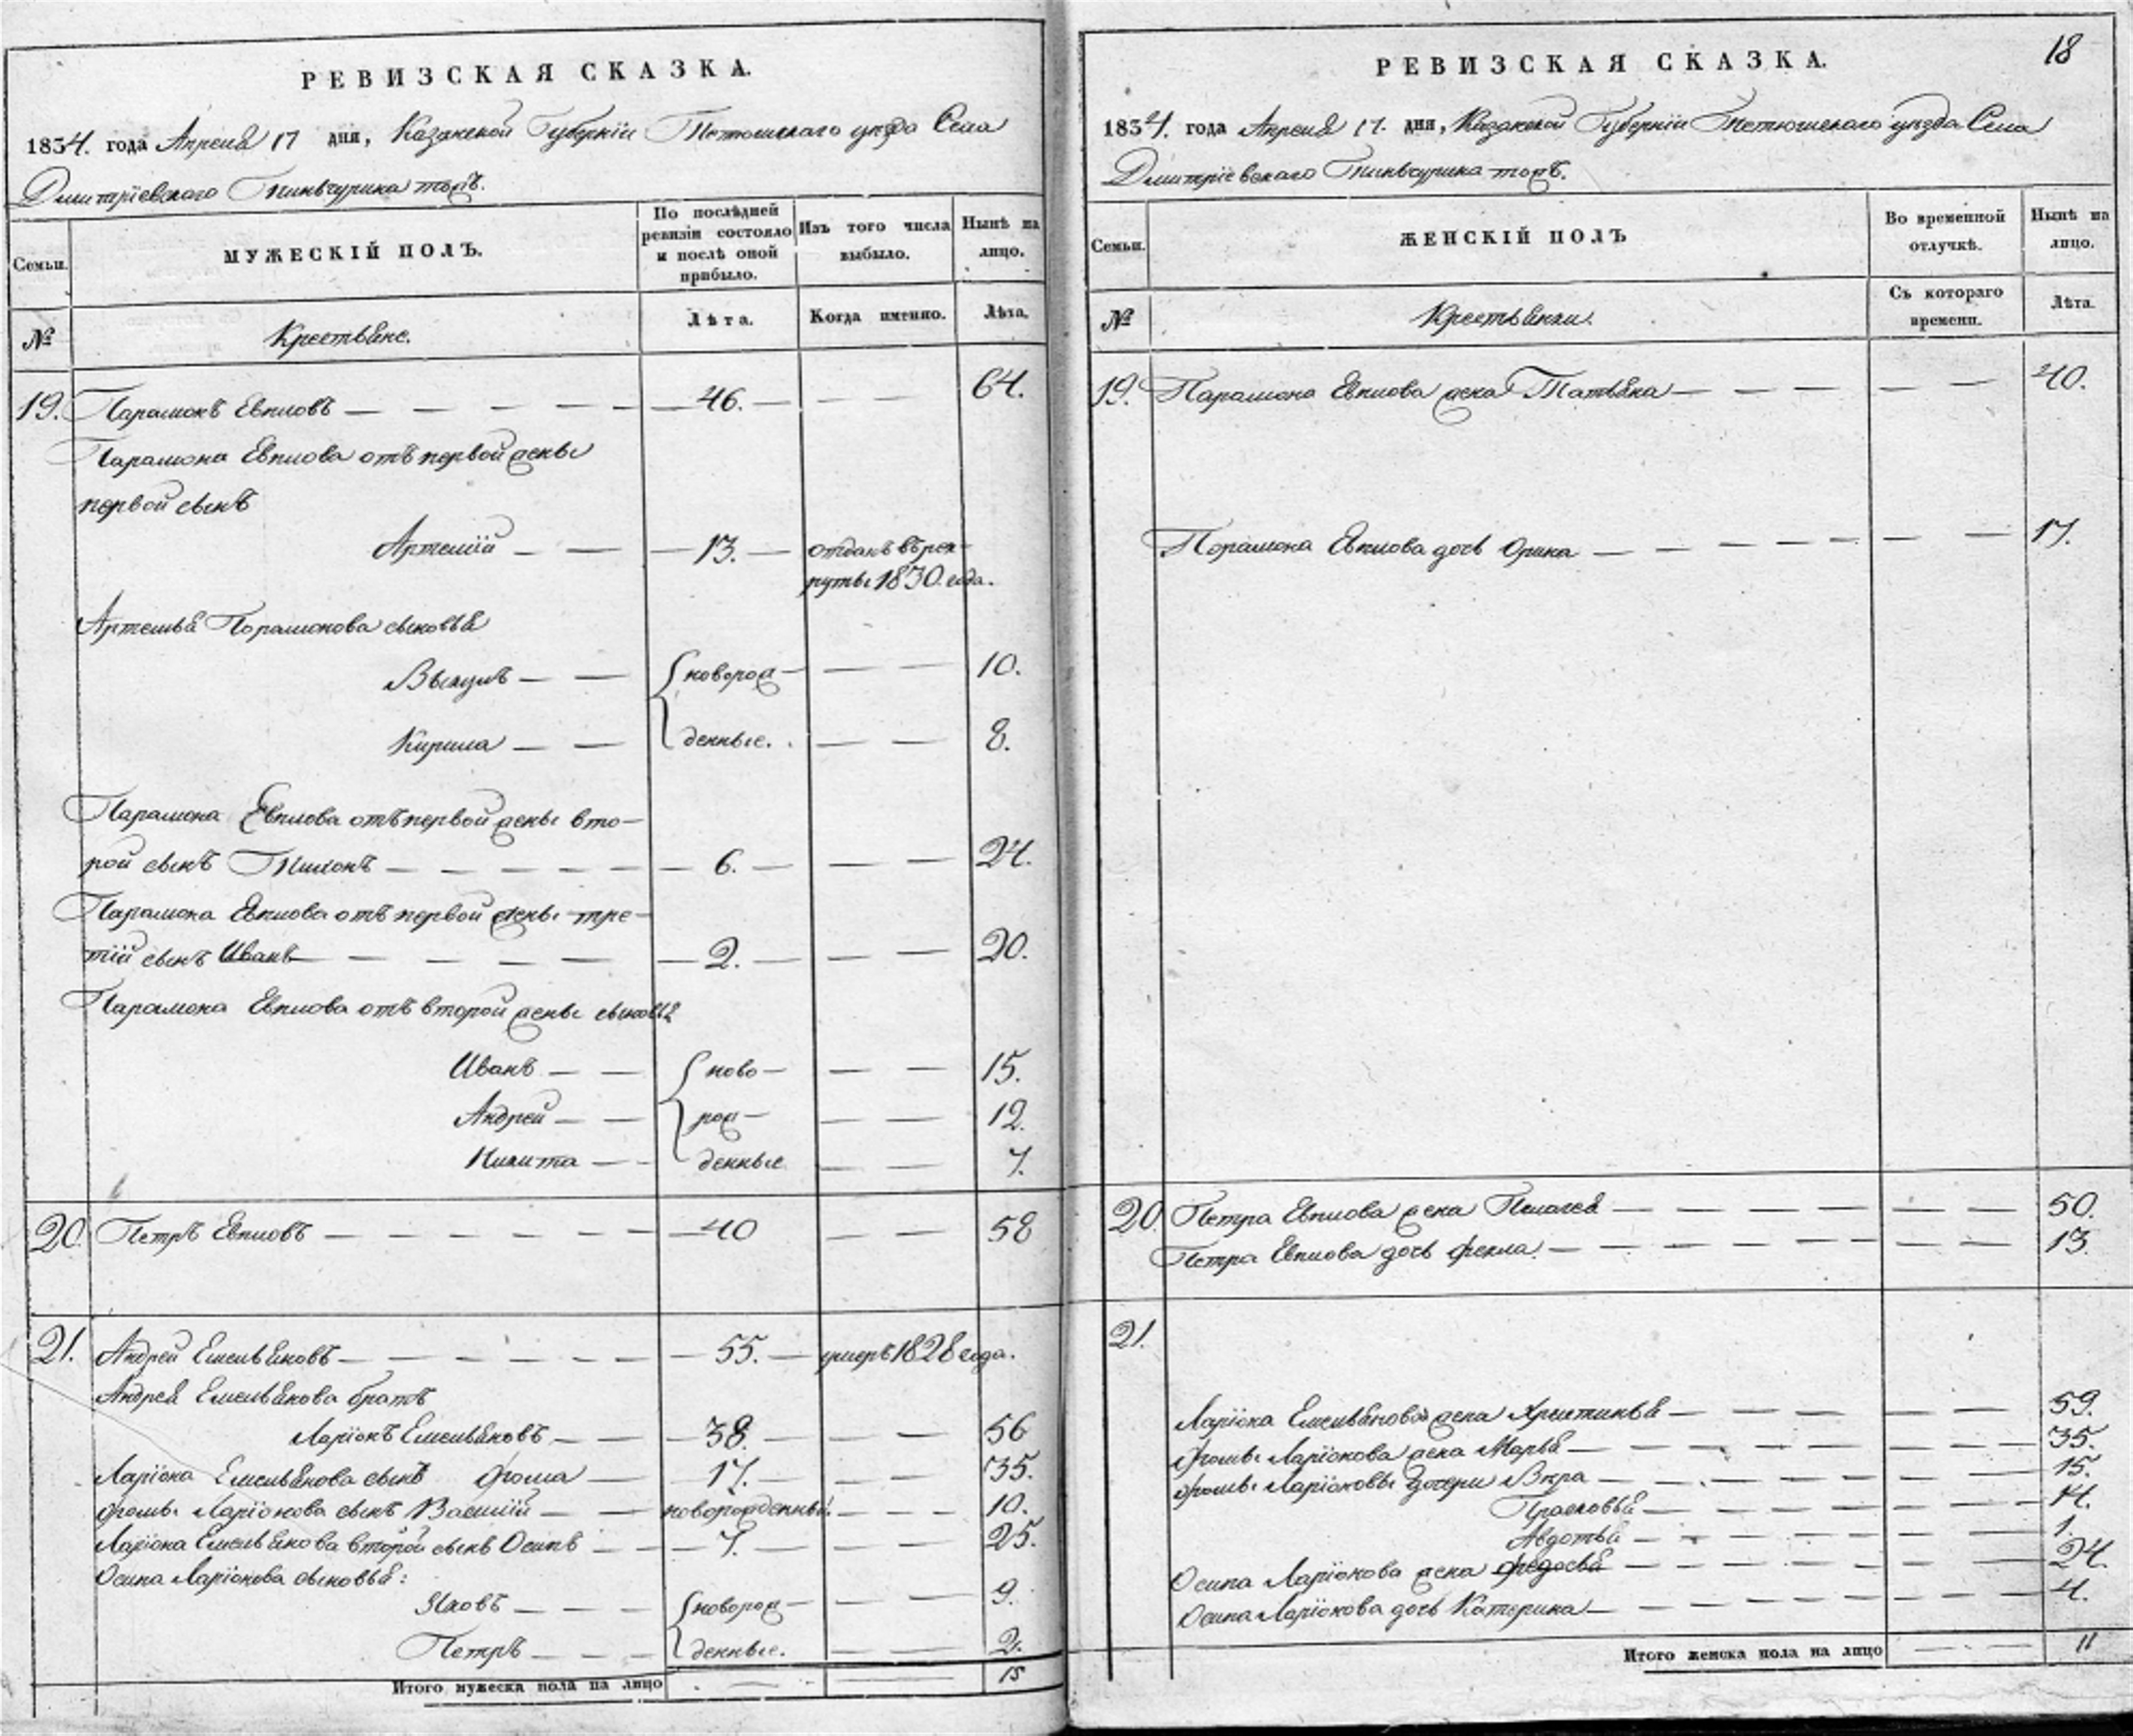 РЕВИЗСКАЯ СКАЗКА.
1834. года Апреля 17 дня, Казанской Губернiи Тетюшскаго уѣзда Села
Дмитрiевскаго тожъ.
Семьи.
МУЖЕСКIЙ ПОЛЪ.
По послѣдней ревизiи состояло и послѣ оной прибыло.
Изъ того числа выбыло.
Нынѣ на лицо.
№
Крестьяне.
Лѣта.
Когда именно.
Лѣта.
19. Парамонъ Евпловъ — 46. — 64.
Парамона Евплова отъ первой жены
первой сынъ
Артемiй — 13. — отданъ въ рек-
руты 1830. года.
Артемья Парамонова сыновья
Викулъ — новорож- — 10.
Кирила — денные. — 8.
Парамона Евплова отъ первой жены вто-
рой сынъ Тихонъ — 6. — 24.
Парамона Евплова отъ первой жены тре-
тiй сынъ Иванъ — 2. — 20.
Парамона Евплова отъ второй жены сыновья
Иванъ — ново- — 15.
Андрей — рож- — 12.
Никита — денные — 7.
20. Петръ Евпловъ — 40 — 58
21. Андрей Емельяновъ — 55. — умеръ 1828 года.
Андрея Емельянова братъ
Ларiонъ Емельяновъ — 38. — 56
Ларiона Емельянова сынъ Фома — 17. — 35.
Фомы Ларiонова сынъ Василiй — новорожденный. — 10.
Ларiона Емельянова второй сынъ Осипъ — 7. — 25.
Осипа Ларiонова сыновья:
Яковъ — новорож- — 9.
Петръ — денные. — 2.
Итого мужеска пола на лицо — 15
18
РЕВИЗСКАЯ СКАЗКА.
1834. года Апреля 17. дня, Казанской Губернiи Тетюшскаго уѣзда Села
Дмитрiевскаго тожъ.
Семьи.
ЖЕНСКIЙ ПОЛЪ
Во временной отлучкѣ.
Нынѣ на лицо.
№
Крестьянки.
Съ котораго времени.
Лѣта.
19. Парамона Евплова жена Татьяна — 40.
Порамона Евплова дочь Орина — 17.
20. Петра Евплова жена Пелагея — 50.
Петра Евплова дочь Фекла — 13.
21.
Ларiона Емельянова жена Христинья — 59.
Фомы Ларiонова жена Марья — 35.
Фомы Ларiоновы дочери Вѣра — 15.
Прасковья — 14.
Авдотья — 1.
Осипа Ларiонова жена Федосья — 24.
Осипа Ларiонова дочь Катерина — 4.
Итого женска пола на лицо — 11